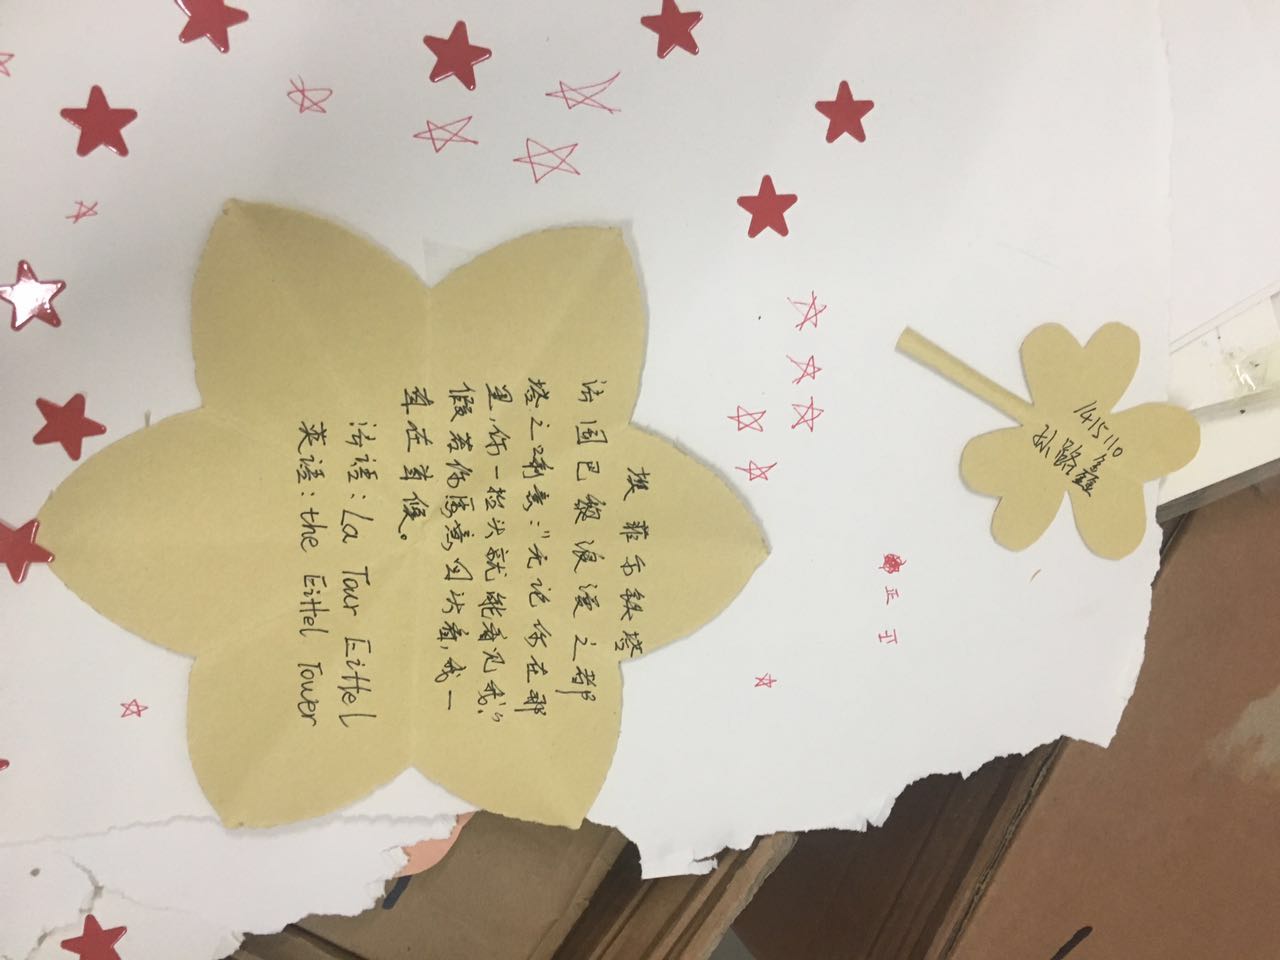 埃菲尔铁塔
法国巴黎浪漫之都
塔之寓意:"无论你在哪
里,你一抬头就能看见我"
假若你愿意回头看,我一
直在等候。
法语:La Tour Eiffel
英语:the Eiffel Tower
1415110
孙路鑫
正
正